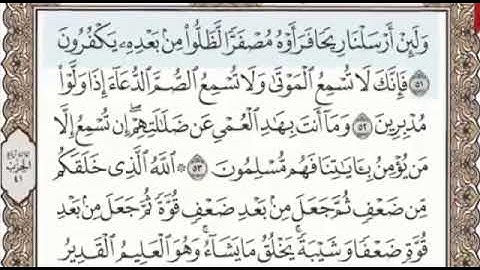 وَلَئِنْ أَرْسَلْنَا رِيحًا فَرَأَوْهُ مُصْفَرًّا لَّظَلُّوا۟ مِنۢ بَعْدِهِۦ يَكْفُرُونَ
٥١ فَإِنَّكَ لَا تُسْمِعُ ٱلْمَوْتَىٰ وَلَا تُسْمِعُ ٱلصُّمَّ ٱلدُّعَآءَ إِذَا وَلَّوْا۟
مُدْبِرِينَ ٥٢ وَمَآ أَنتَ بِهَٰدِ ٱلْعُمْىِ عَن ضَلَٰلَتِهِمْ ۖ إِن تُسْمِعُ إِلَّا
مَن يُؤْمِنُ بِـَٔايَٰتِنَا فَهُم مُّسْلِمُونَ ٥٣ ۞ ٱللَّهُ ٱلَّذِى خَلَقَكُم
مِّن ضَعْفٍ ثُمَّ جَعَلَ مِنۢ بَعْدِ ضَعْفٍ قُوَّةً ثُمَّ جَعَلَ مِنۢ بَعْدِ
قُوَّةٍ ضَعْفًا وَشَيْبَةً ۚ يَخْلُقُ مَا يَشَآءُ ۖ وَهُوَ ٱلْعَلِيمُ ٱلْقَدِيرُ
الحزب
٤١